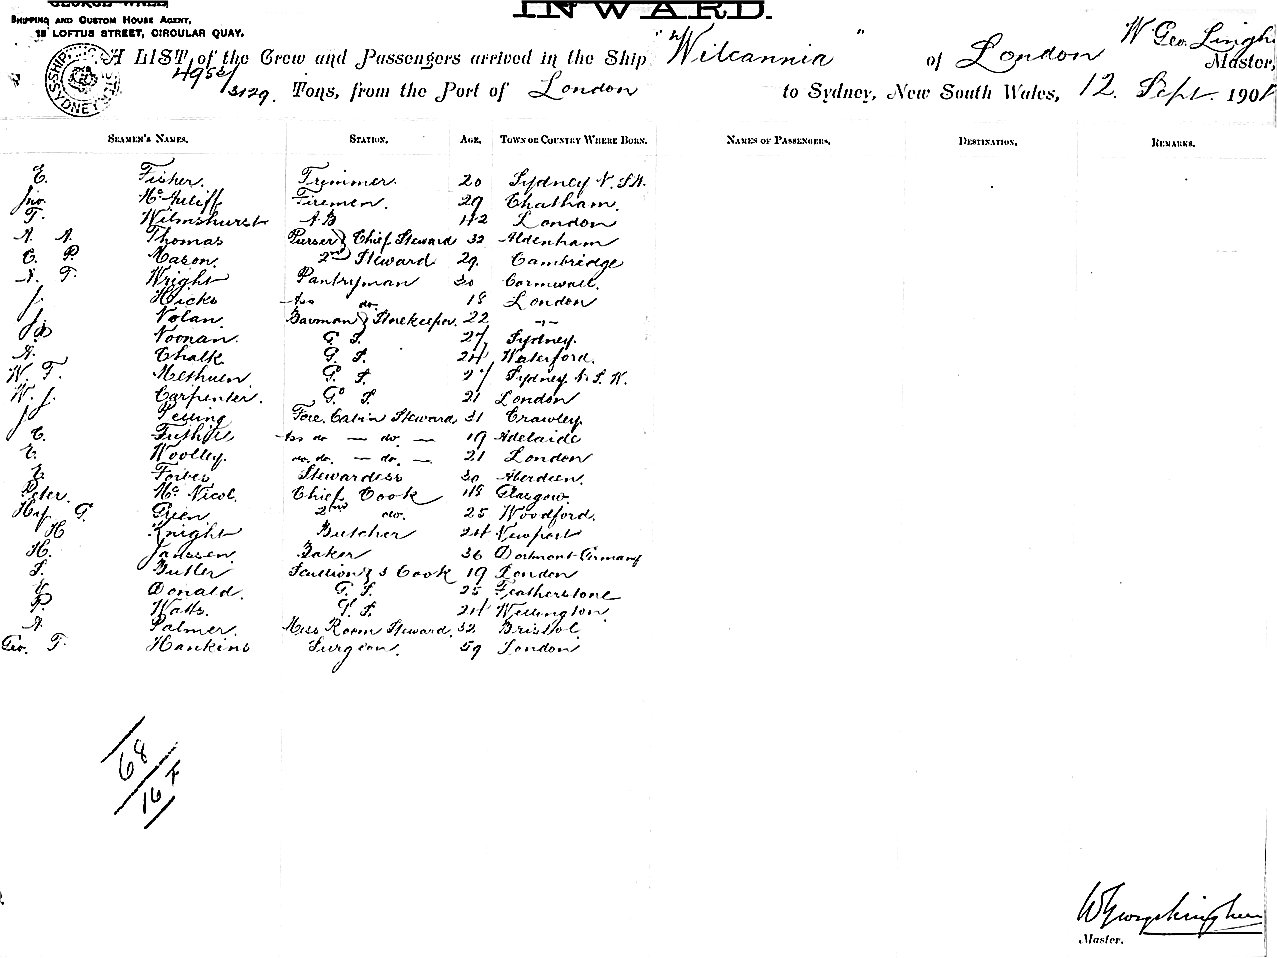 INWARD.
SHIPPING AND CUSTOM HOUSE AGENT,
18 LOFTUS STREET, CIRCULAR QUAY.
A LIST of the Crew and Passengers arrived in the Ship "Wilcannia" of London W Geo. Master,
Tons, from the Port of London to Sydney, New South Wales, 12. Sept. 1901
SEAMEN'S NAMES. STATION. AGE. TOWN OR COUNTRY WHERE BORN. NAMES OF PASSENGERS. DESTINATION. REMARKS.
E. Fisher. Trimmer. 20 Sydney N.S.W.
Jno. McAuliff Firemen. 29 Chatham.
T. Wilmshurst A.B. 42 London
A. A. Thomas Purser & Chief Steward 32 Aldenham
C. P. Mason. 2nd Steward 29. Cambridge
A. T. Wright Pantryman 30 Cornwall.
J. Hicks Ass do. 18 London
J. Nolan. Barman & Storekeeper. 22 -"-
Noonan. G. S. 27 Sydney.
A. Chalk G. S. 24 Waterford.
W. F. Methuen. G. S. 27 Sydney N.S.W.
W. J. Carpenter. G. S. 21 London
J. Pelling Fore Cabin Steward. 31 Crawley.
C. Ass do — do. — 19 Adelaide
E. Woolley. do. do. — do. — 21 London
E. Forbes Stewardess 30 Aberdeen.
Peter. McNicol. Chief Cook 48 Glasgow.
Hy. G. Green 2nd do. 25 Woodford.
H Knight Butcher 24 Newport
H. Janssen Baker 36 Dortmont Germany
S. Butler Scullion & 3 Cook 19 London
Donald. G. S. 25 Featherstone
P. Watts. G. S. 24 Wellington.
A Palmer. Mess Room Steward. 32 Bristol.
Geo. T. Hankins Surgeon. 59 London
68
16
Master.